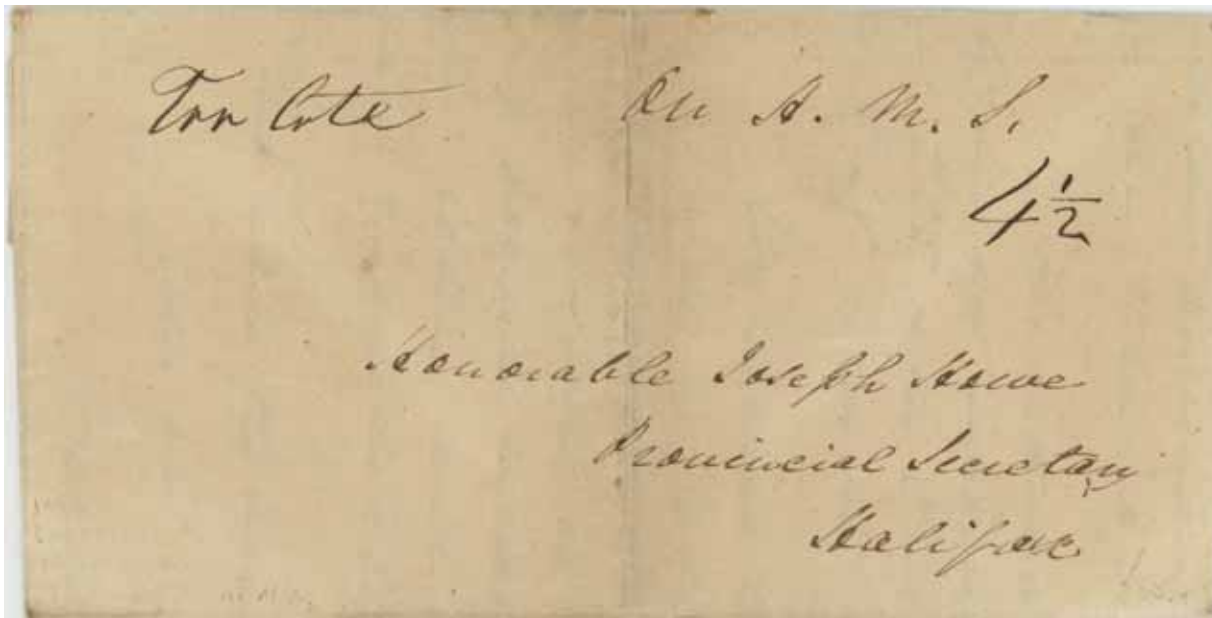 On H. M. S.
4 1/2
Honorable Joseph Howe
Provincial Secretary
Halifax